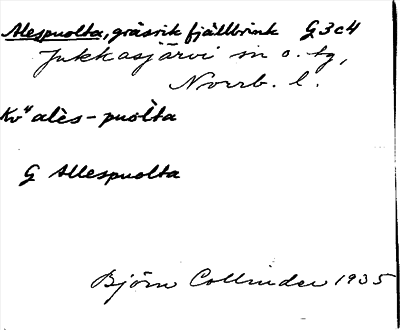 Alespuolta, gräsrik fjällbrink G3c4
Jukkasjärvi sn o. tg,
Norrb. l.
Kv" alès-puòlta
G Allespuolta
Björn Collinder 1935